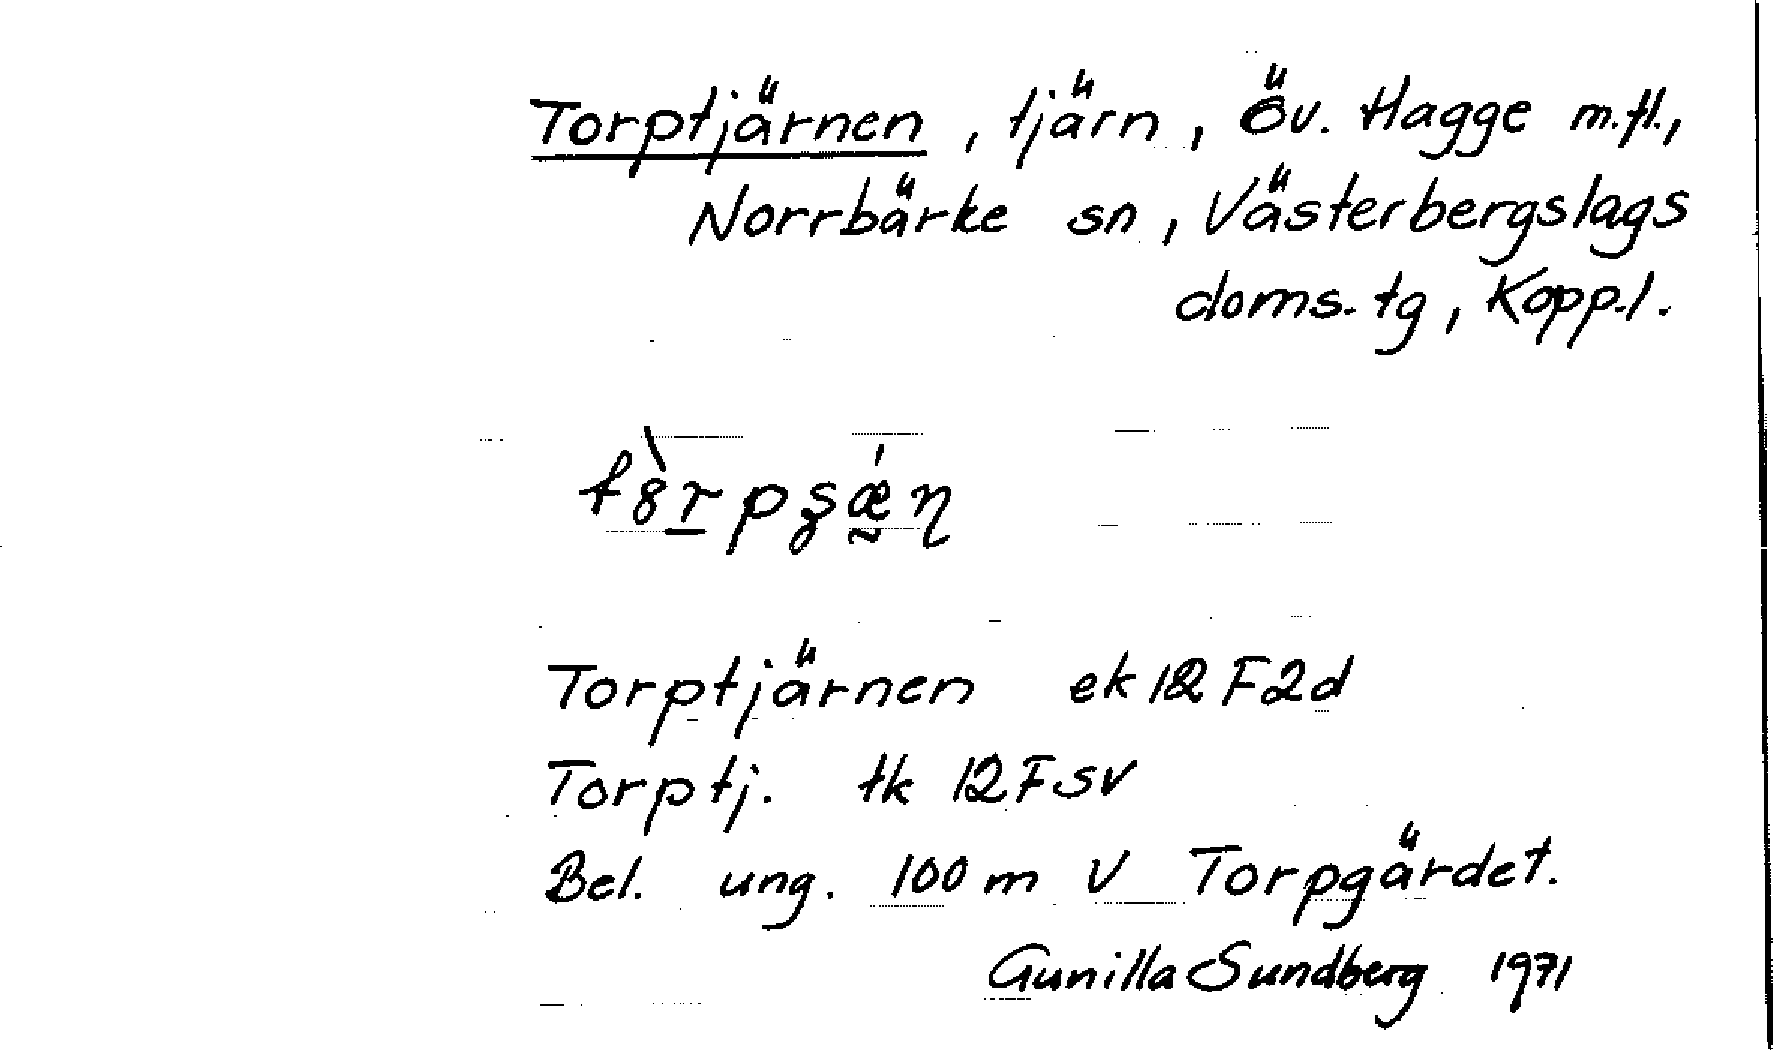 Torptjärnen, tjärn, Öv. Hagge m.fl.,
Norrbärke sn, Västerbergslags
doms. tg, Kopp.l.
Torptjärnen ek 12F2d
Torptj. tk 12F SV
Bel. ung. 100 m V Torpgärdet.
Gunilla Sundberg 1971